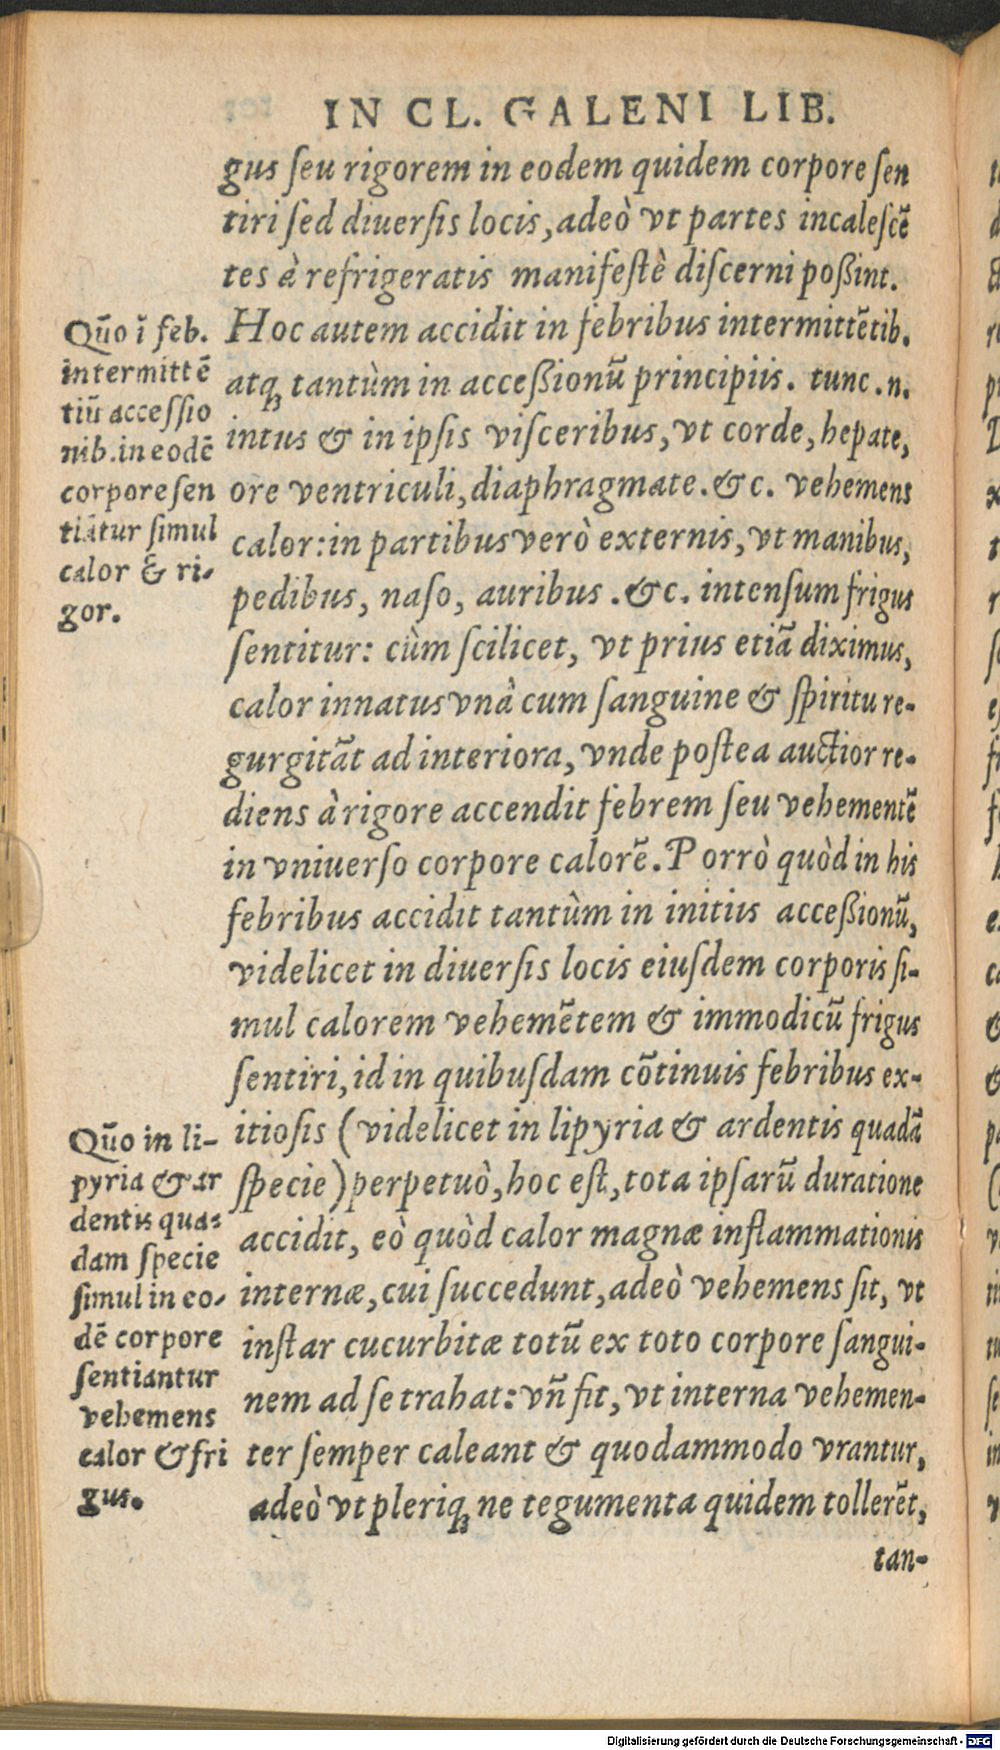 IN CL. GALENI LIB.
gus ſeu rigorem in eodem quidem corpore ſen
tiri ſed diuerſis locis, adeò vt partes incaleſcē
tes à refrigeratis manifeſtè diſcerni poßint.
Hoc autem accidit in febribus intermittētib.
atq; tantùm in acceßionū principiis. tunc .n.
intus & in ipſis viſceribus, vt corde, hepate,
ore ventriculi, diaphragmate. &c. vehemens
calor: in partibus verò externis, vt manibus,
pedibus, naſo, auribus . &c. intenſum frigus
ſentitur: cùm ſcilicet, vt prius etiā diximus,
calor innatus vnà cum ſanguine & ſpiritu re-
gurgitāt ad interiora, vnde poſtea auctior re-
diens à rigore accendit febrem ſeu vehementē
in vniuerſo corpore calorē. Porrò quòd in his
febribus accidit tantùm in initiis acceßionū,
videlicet in diuerſis locis eiuſdem corporis ſi-
mul calorem vehemētem & immodicū frigus
ſentiri, id in quibuſdam cōtinuis febribus ex-
itioſis (videlicet in lipyria & ardentis quadā
ſpecie) perpetuò, hoc eſt, tota ipſarū duratione
accidit, eò quòd calor magnæ inflammationis
internæ, cui ſuccedunt, adeò vehemens ſit, vt
inſtar cucurbitæ totū ex toto corpore ſangui-
nem ad ſe trahat: vn̄ fit, vt interna vehemen-
ter ſemper caleant & quodammodo vrantur,
adeò vt pleriq; ne tegumenta quidem tollerēt,
tan-
Quō ī feb.
intermittē
tiū acceſſio
nib. in eodē
corpore ſen
tiātur ſimul
calor & ri-
gor.
Quō in li-
pyria & ar
dentis qua-
dam ſpecie
ſimul in eo-
dē corpore
ſentiantur
vehemens
calor & fri
gus.
Digitalisierung gefördert durch die Deutsche Forschungsgemeinschaft - DFG